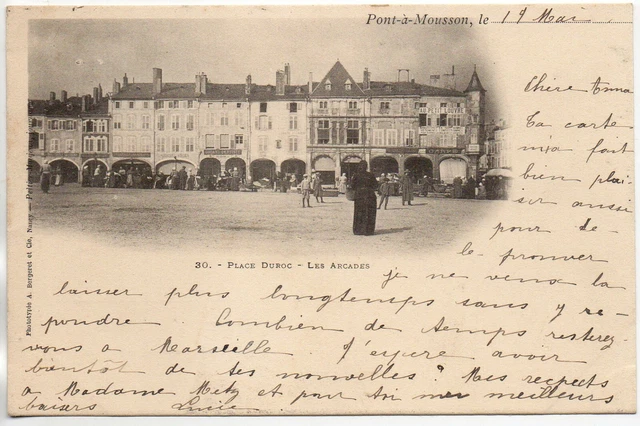 Pont-à-Mousson, le 19 Mai
Chère Anna
Ta carte
m'a fait
bien plai-
sir aussi
pour te
le prouver
je ne veux la
laisser plus longtemps sans y ré-
pondre. Combien de temps resterez-
vous a Marseille J'espère avoir
bientot de tes nouvelles? Mes respects
a Madame Metz et pour toi mes meilleurs
baisers Lucie
30. - Place Duroc - Les Arcades
Phototypie A. Bergeret et Cie, Nancy